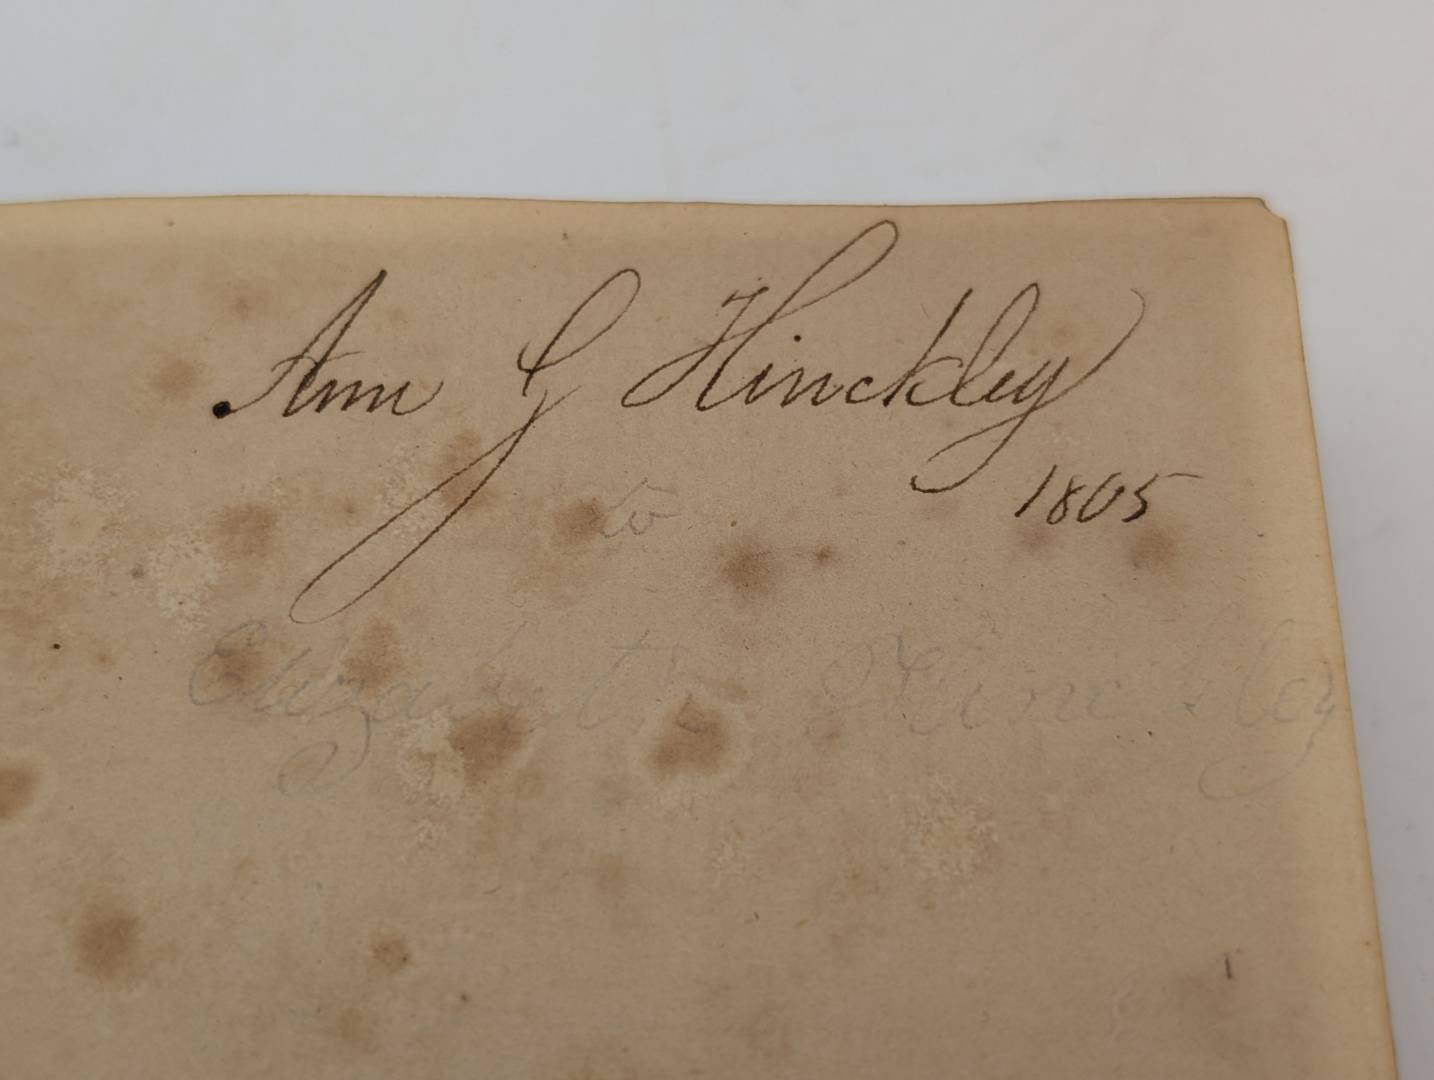 Ann G Hinckley
1805
to
Elizabeth Hinckley